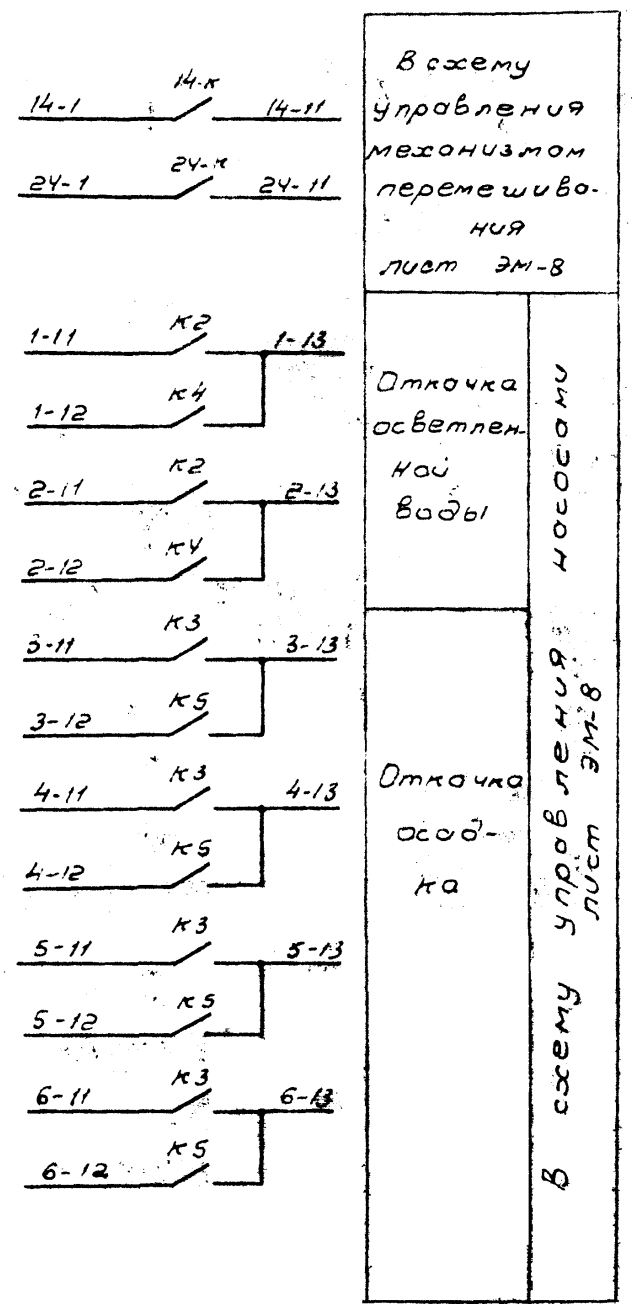 14-к
14-1 14-11
24-к
24-1 24-11
В схему
управления
механизмом
перемешива-
ния
лист ЭМ-8
К2
1-11 1-13
К4
1-12
К2
2-11 2-13
К4
2-12
Откачка
осветлен-
ной
воды
К3
3-11 3-13
К5
3-12
К3
4-11 4-13
К5
4-12
К3
5-11 5-13
К5
5-12
К3
6-11 6-13
К5
6-12
Откачка
осад-
ка
В схему управления насосами
лист ЭМ-8